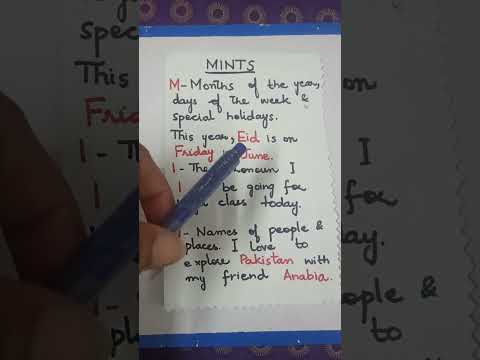 MINTS
M- Months of the year,
days of the week &
special holidays.
This year, Eid is on
Friday June.
I - The pronoun I
I be going for
class today.
- Names of people &
places. I love to
explore Pakistan with
my friend Anabia.